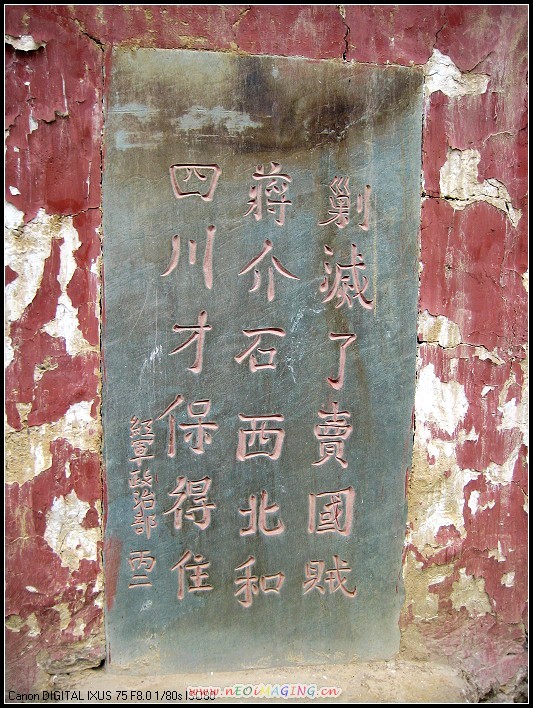 剿滅了賣國賊
蔣介石西北和
四川才保得住
紅軍政治部 丙二
Canon DIGITAL IXUS 75 F8.0 1/80s
www.nEOiMAGING.cn